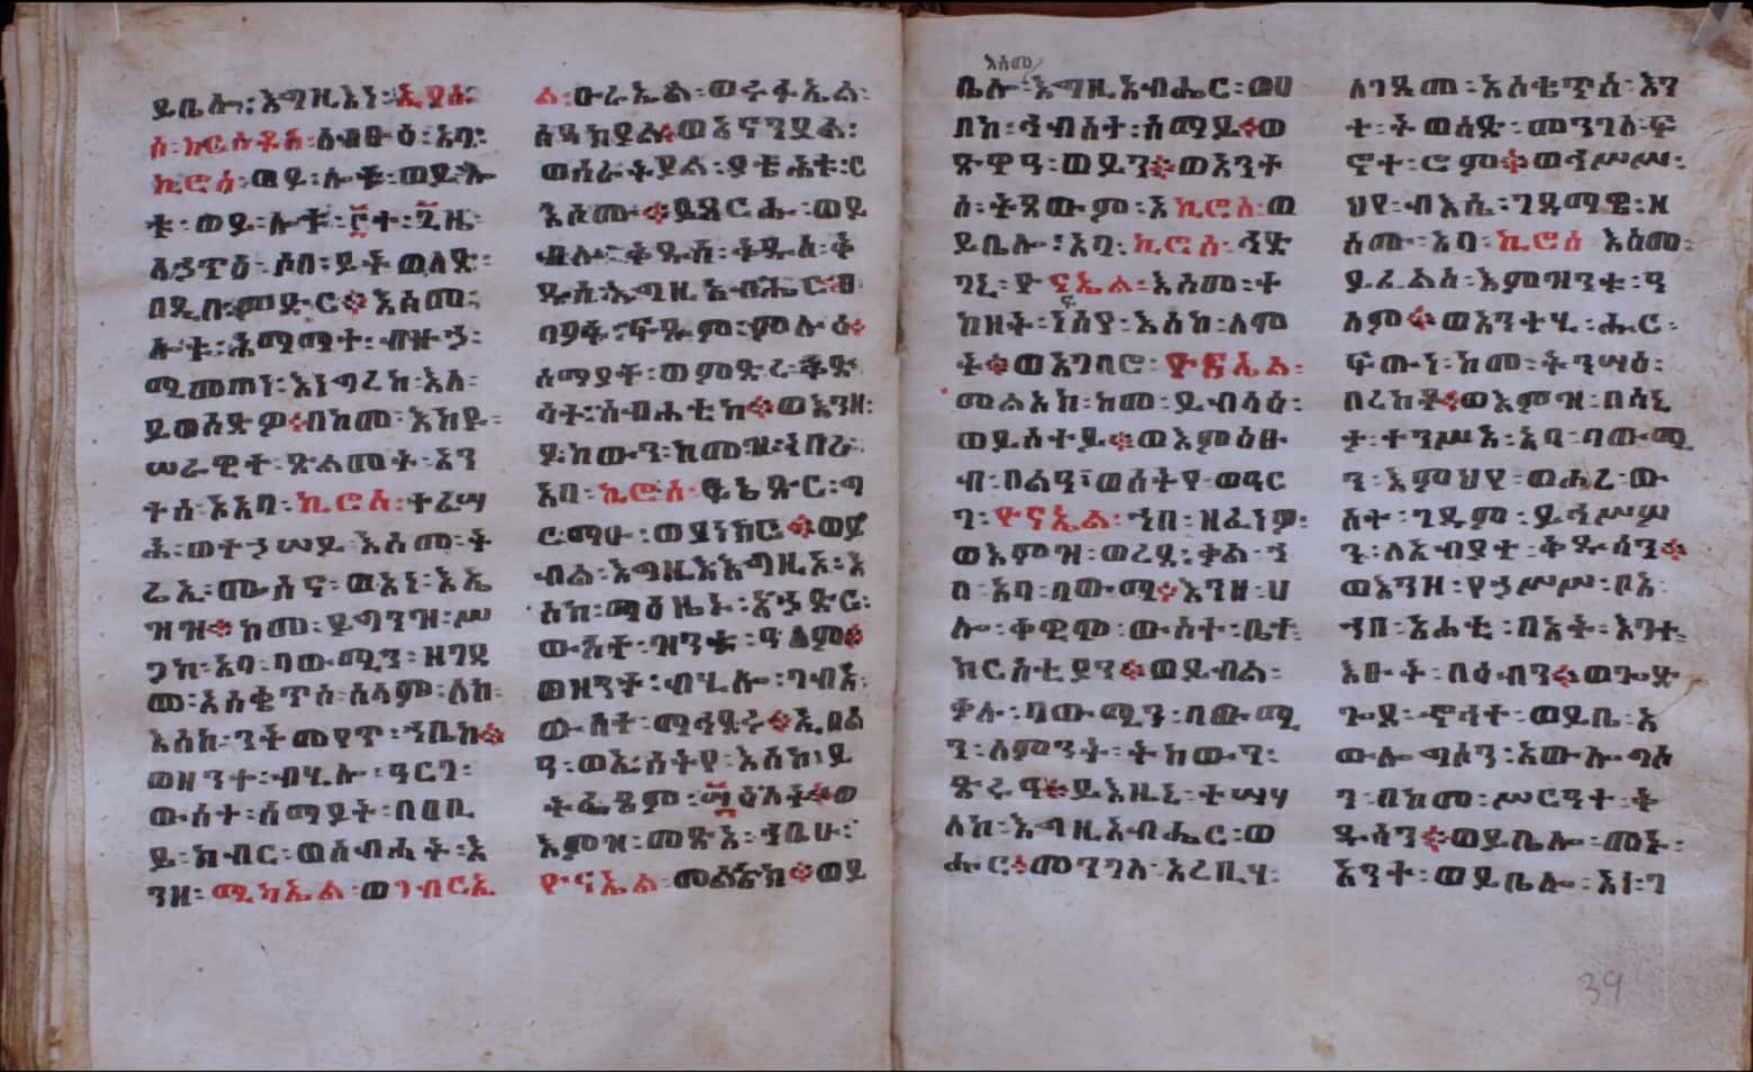 ይቤሎ፡እግዚእነ፡ኢየሱ
ስ፡ክርስቶስ፡ለብፁዕ፡አባ፡
ኪሮስ፡ወይ፡ሎቱ፡ወይሉ
ቱ፡ወይ፡ሎቱ፡፫ተ፡፪ዜ፡
ለኃጥዕ፡ሶበ፡ይትወለድ፡
በዲበ፡ምድር፨እስመ፡
ሎቱ፡ሕማማተ፡ብዙኅ፡
ሚመጠነ፡እነግረከ፡እለ፡
ይወስድዎ፨በከመ፡እከይ፡
ሠራዊተ፡ጽልመት፡እን
ተሰ፡ኦአባ፡ኪሮስ፡ተፈሣ
ሕ፡ወተኃሠይ፡እስመ፡ት
ሬኢ፡ሙስና፡ወእነ፡እኤ
ዝዝ፨ከመ፡ይግንዝ፡ሥ
ጋከ፡አባ፡ባውሚን፡ዘገዳ
መ፡አስቄጥስ፡ሰላም፡ለከ፡
እስከ፡ንትመየጥ፡ኀቤከ፨
ወዘንተ፡ብሂሎ፡ዓርገ፡
ውስተ፡ሰማያት፡በዐቢ
ይ፡ክብር፡ወስብሐት፡እ
ንዘ፡ሚካኤል፡ወገብርኤ
ል፡ዑራኤል፡ወሩፋኤል፡
ሰዳክያል፨ወአናንያል፡
ወሰራትያል፡ያቄሐቱ፡ር
እሰሙ፨ይጼርሑ፡ወይ
ብሉ፡ቅዱስ፡ቅዱስ፡ቅ
ዱስ፡እግዚአብሔር፡ፀ
ባዎት፡ፍጹም፡ምሉዕ፨
ሰማያት፡ወምድረ፡ቅድ
ሳት፡ስብሐቲከ፨ወእንዘ፡
ይከውን፡ከመዝ፡ነበራ፡
አባ፡ኪሮስ፡ፍኖጽር፡ግ
ርማሁ፡ወያነክር፨ወይ
ብል፡እግዚእእግዚኦ፡እ
ስከ፡ማዕዜኑ፡አኃድር፡
ውስተ፡ዝንቱ፡ዓለም፨
ወዘንተ፡ብሂሎ፡ገብአ፡
ውስተ፡ማኅደሩ፨ኢበል
ዓ፡ወኢሰትየ፡እስከ፡ይ
ትፌጸም፡፵ዕለት፨ወ
እምዝ፡መጽአ፡ኀቤሁ፡
ዮናኤል፡መልአክ፨ወይ
ቤሎ፡እስመ፡እግዚአብሔር፡ወሀ
በከ፡ኀብስተ፡ሰማይ፨ወ
ጽዋዓ፡ወይን፨ወአንት
ሰ፡ትጸውም፡አኪሮስ፡ወ
ይቤሎ፡አባ፡ኪሮስ፡ኀድ
ገኒ፡ዮናኤል፡እስመ፡ተ
ከዘት፡ነፍስየ፡እስከ፡ለም
ት፨ወአገበሮ፡ዮናኤል፡
መልአክ፡ከመ፡ይብላዕ፡
ወይስተይ፨ወእምዕፁ
ብ፡በልዓ፡ወሰትየ፡ወዓር
ገ፡ዮናኤል፡ኀበ፡ዘፈነዎ፡
ወእምዝ፡ወረደ፡ቃል፡ኀ
በ፡አባ፡ባውሚ፨እንዘ፡ሀ
ሎ፡ቀዊሞ፡ውስተ፡ቤተ፡
ክርስቲያን፨ወይብል፡
ቃሉ፡ባውሚን፡ባውሚ
ን፡ለምንት፡ትከውን፡
ጽሩዓ፨ይእዜኒ፡ተሣሃ
ለከ፡እግዚአብሔር፡ወ
ሑር፨መንገለ፡አረቢሃ፡
ለገዳመ፡አስቄጥስ፡እን
ተ፡ትወስድ፡መንገለ፡ፍ
ኖተ፡ሮም፨ወኅሥሥ፡
ህየ፡ብእሲ፡ገዳማዊ፡ዘ
ስሙ፡አባ፡ኪሮስ፡እስመ፡
ይፈልስ፡እምዝንቱ፡ዓ
ለም፨ወአንተሂ፡ሑር፡
ፍጡነ፡ከመ፡ትንሣዕ፡
በረከቶ፨ወእምዝ፡በሳኒ
ታ፡ተንሥአ፡አባ፡ባውሚ
ን፡እምህየ፡ወሐረ፡ው
ስተ፡ገዳም፡ይኅሥሥ
ን፡ለአብያተ፡ቅዱሳን፨
ወእንዘ፡የኃሥሥ፡በአ
ኀበ፡አሐቲ፡በአት፡እንተ፡
እፁት፡በዕብን፨ወጐድ
ጐደ፡ኆኅተ፡ወይቤ፡አ
ውሎግሶን፡አውሎግሶ
ን፡በከመ፡ሥርዓተ፡ቅ
ዱሳን፨ወይቤሎ፡መኑ፡
አንተ፡ወይቤሎ፡አነ፡ገ
39